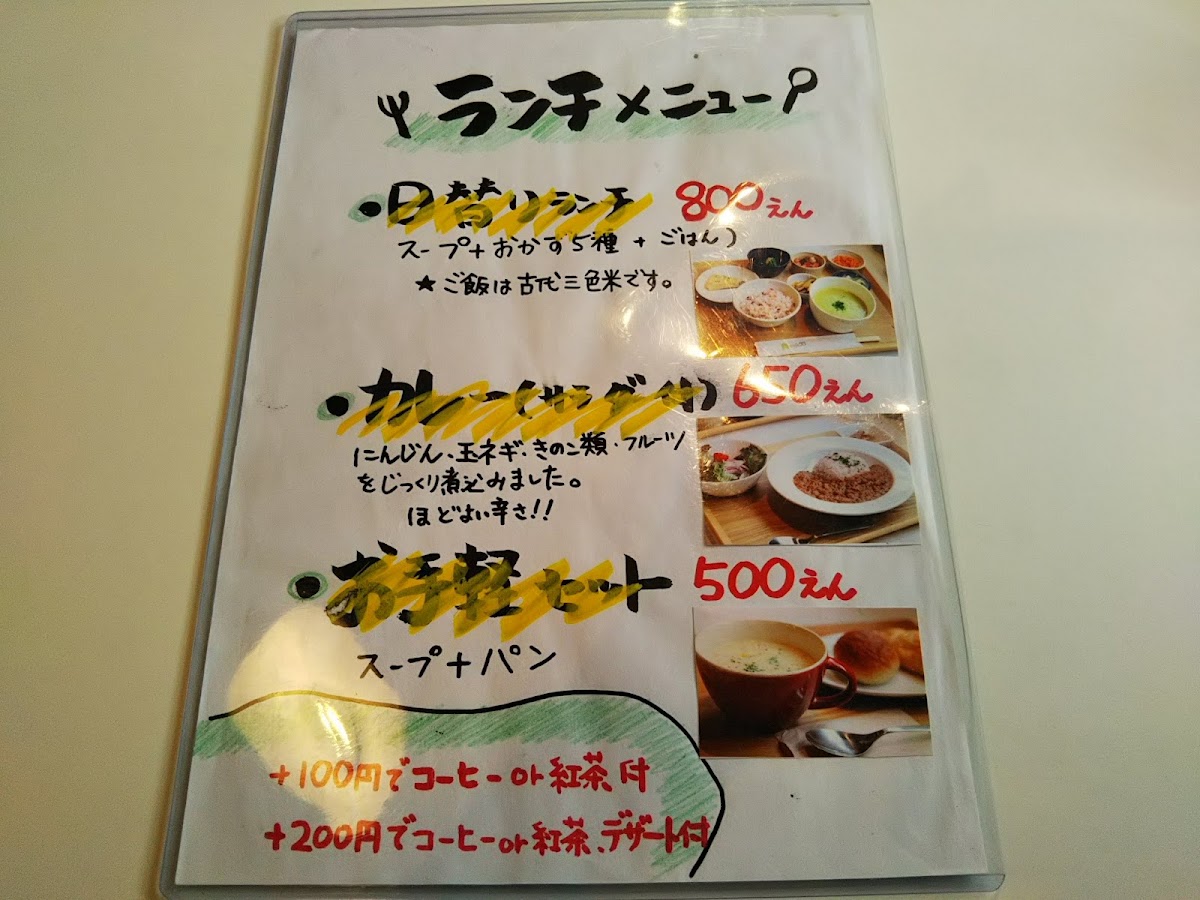 ランチメニュー
・日替りランチ 800えん
スープ+おかず5種+ごはん)
★ご飯は古代三色米です。
・カレー(サラダ付) 650えん
にんじん、玉ネギ、きのこ類、フルーツ
をじっくり煮込みました。
ほどよい辛さ!!
・お手軽セット 500えん
スープ+パン
+100円でコーヒーor紅茶付
+200円でコーヒーor紅茶、デザート付